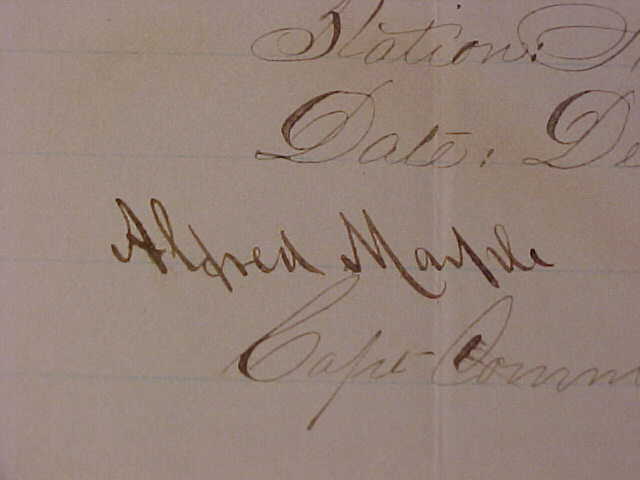 Station:
Date: De
Alfred Marple
Capt Comm